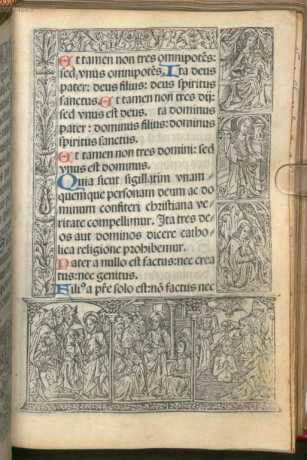 Et tamen non tres omnipotētes:
sed vnus omnipotēs. Ita deus
pater: deus filius: deus spiritus
sanctus. Et tamen non tres dij:
sed vnus est deus. ta dominus
pater: dominus filius: dominus
spiritus sanctus.
Et tamen non tres domini: sed
vnus est dominus.
Quia sicut sigillatim vnam-
quemque personam deum ac do
minum confiteri christiana ve
ritate compellimur. Ita tres de
os aut dominos dicere catho
lica religione prohibemur.
Pater a nullo est factus: nec crea
tus: nec genitus.
Filiꝰ a pr̄e solo est: nō factus nec